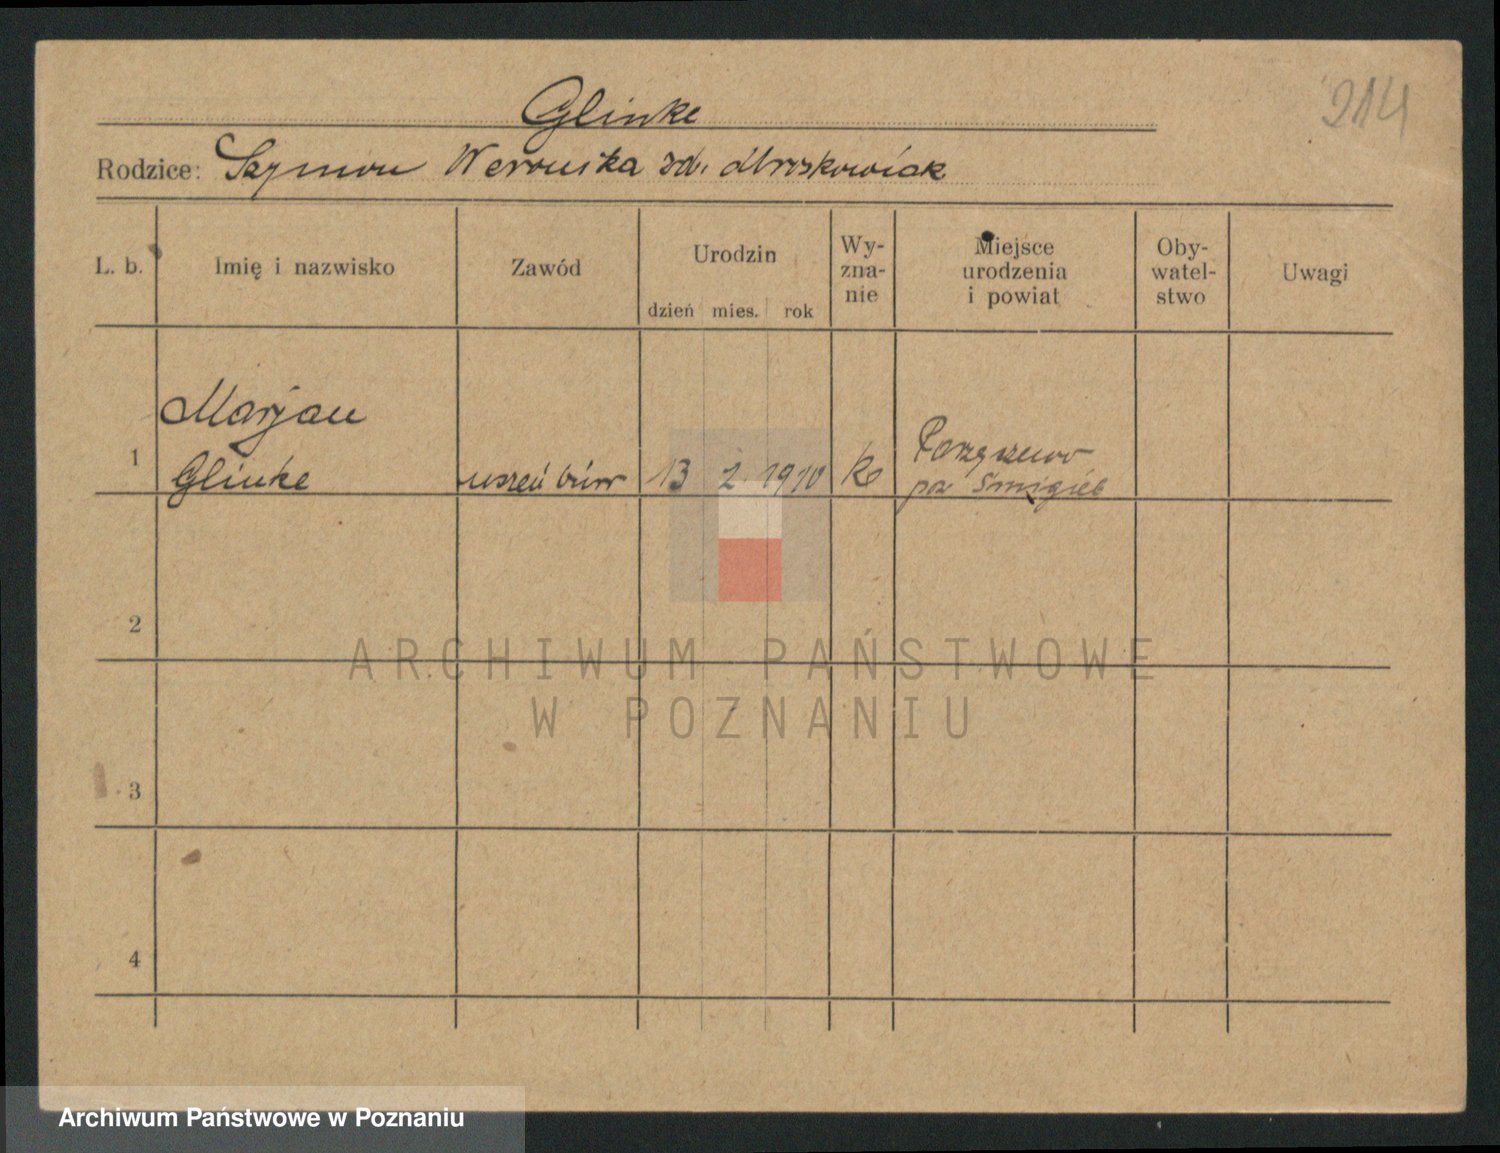 214
Glinke
Rodzice: Szymon Weronika zd.
L. b. Imię i nazwisko Zawód Urodzin dzień mies. rok Wy-zna-nie Miejsce urodzenia i powiat Oby-watel-stwo Uwagi
Marjan
1 Glinke uczeń biur 13 2 1910 k
pow Śmigiel
2
3
4
ARCHIWUM PAŃSTWOWE
W POZNANIU
Archiwum Państwowe w Poznaniu